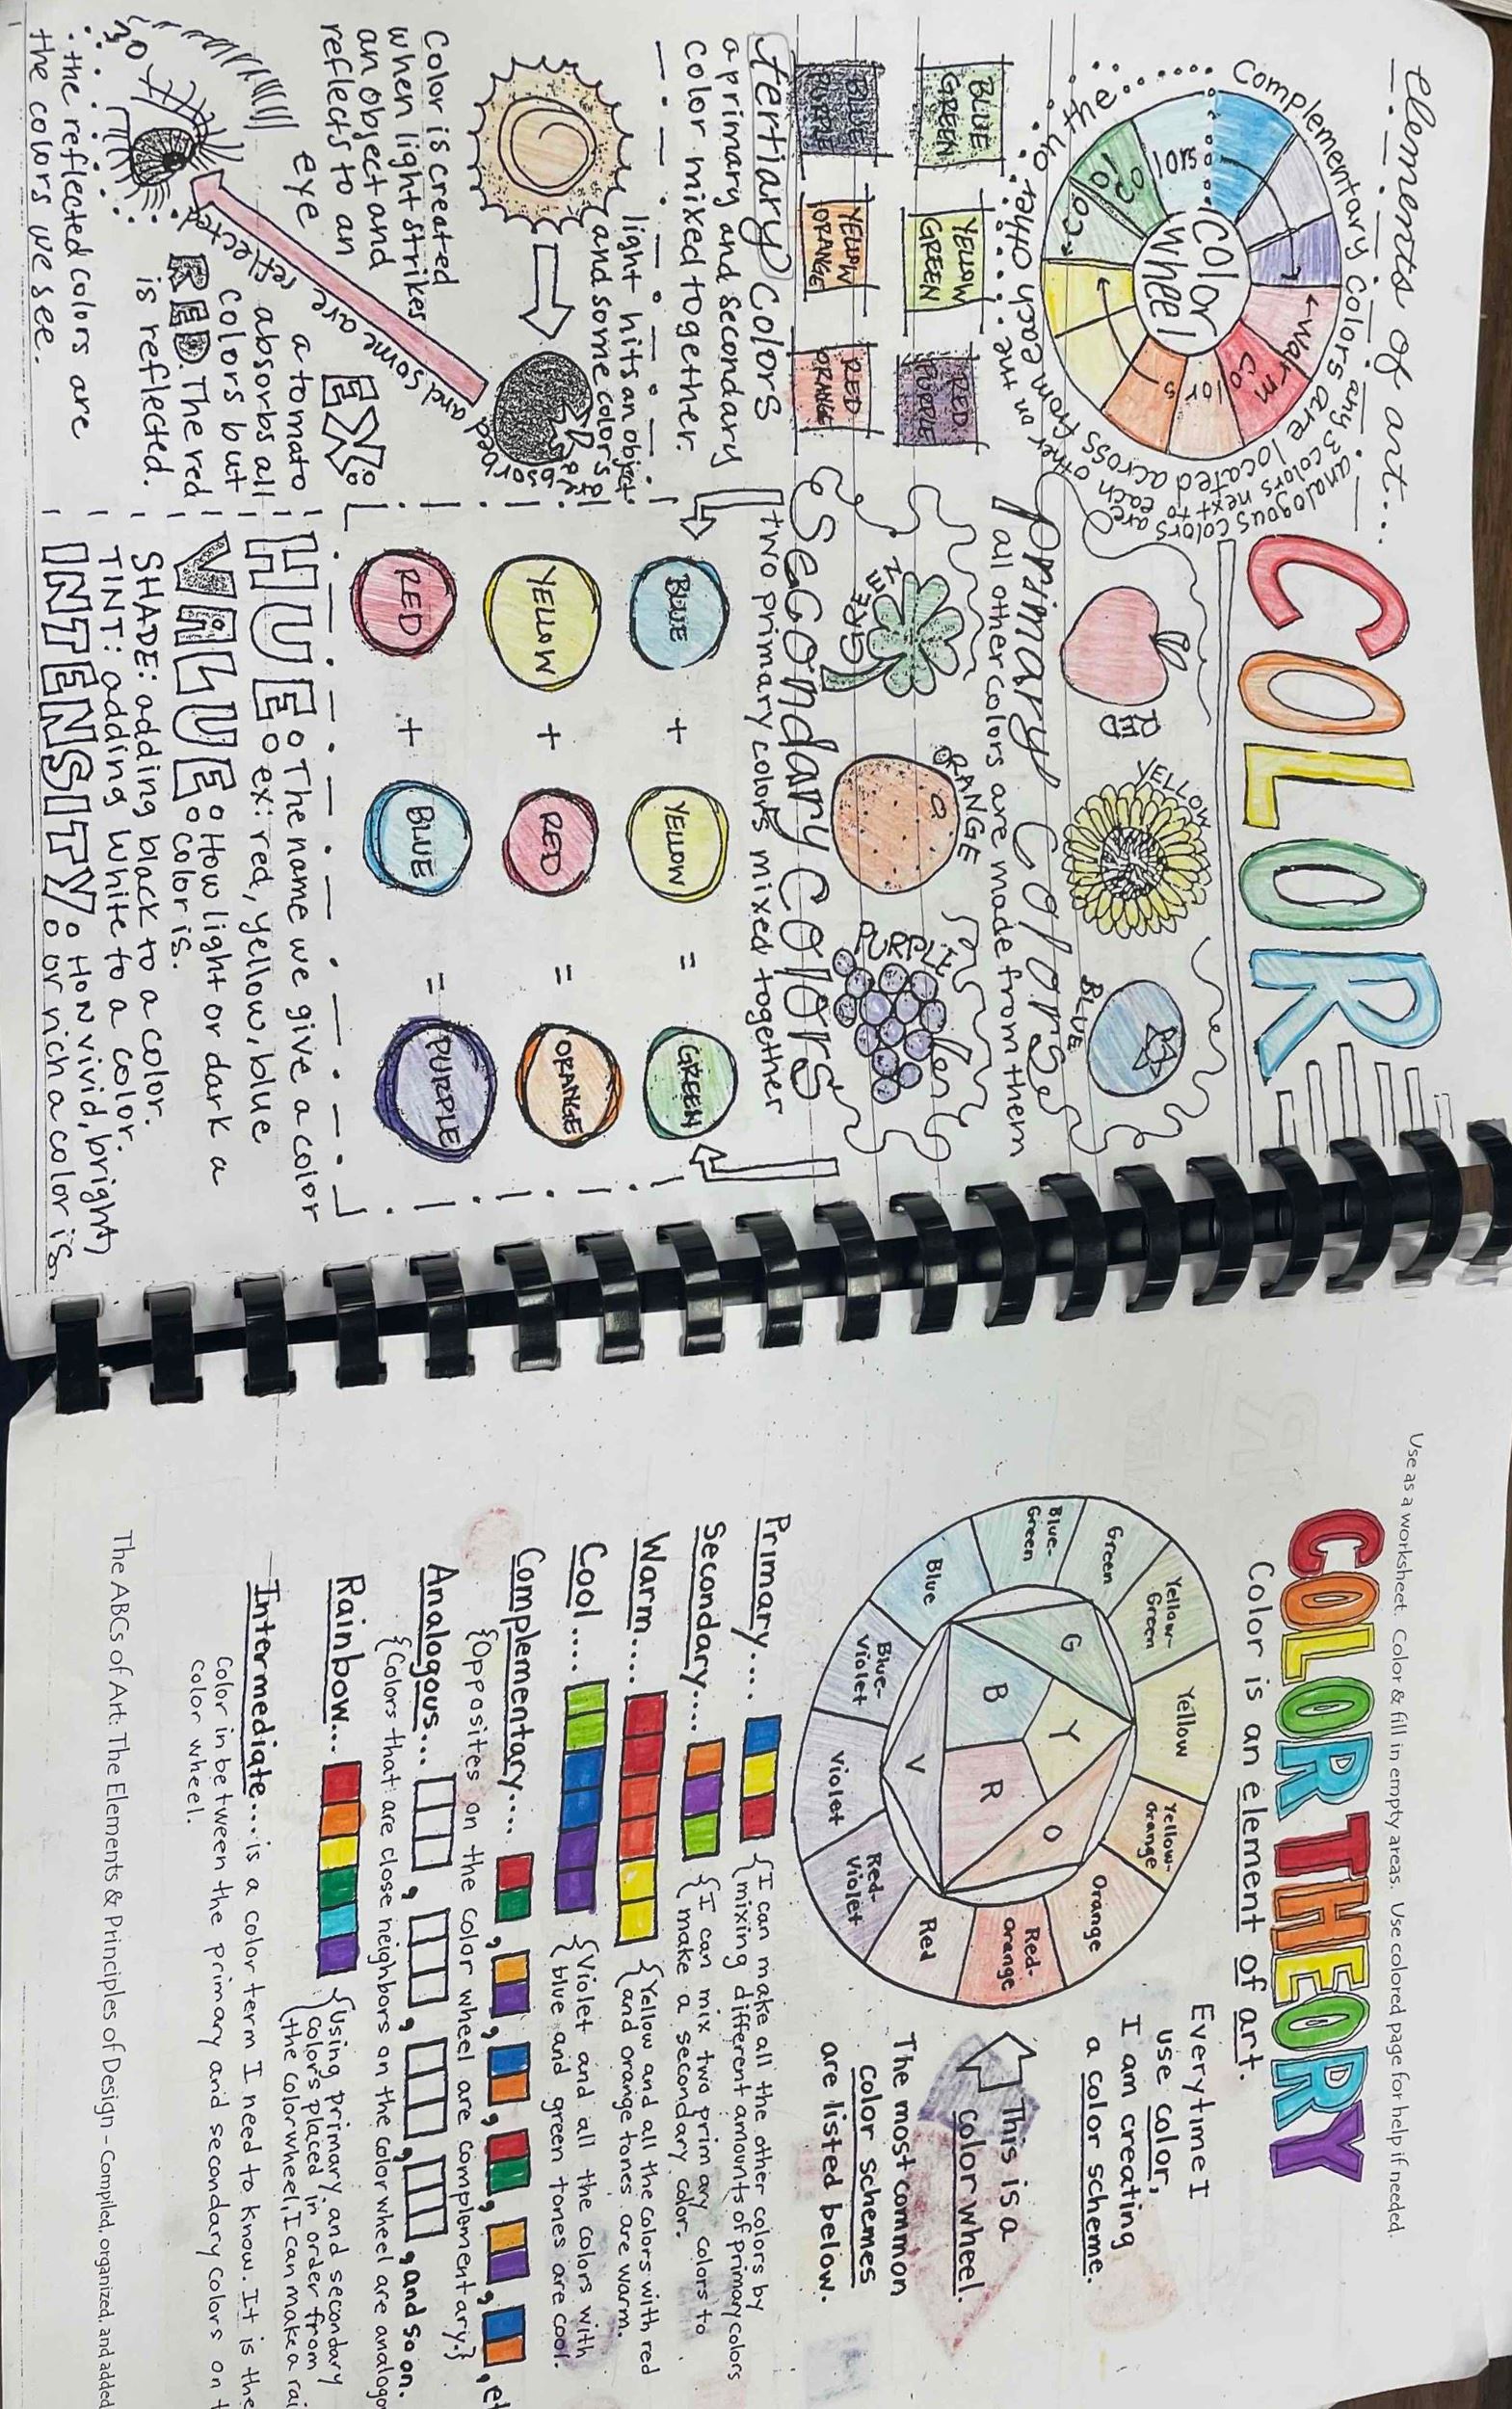 elements of art...
COLOR
Complementary colors are located across
from each other on the
analogous colors are
any 3 colors next to
each other on the
color
wheel
warm
co
lor
s
Co
Ol
Co
lors
RED
YELLOW
BLUE
primary colors
all other colors are made from them
BLUE
GREEN
YELLOW
GREEN
RED
PURPLE
BLUE
PURPLE
YELLOW
ORANGE
RED
ORANGE
GREEN
ORANGE
PURPLE
tertiary colors
a primary and secondary
color mixed together.
secondary colors
two primary colors mixed together
light hits an object
and some colors
are absorbed
and some are reflected
Color is created
when light strikes
an object and
reflects to an
eye
EX:
a tomato
absorbs all
colors but
RED. The red
is reflected.
so
the reflected colors are
the colors we see.
BLUE + YELLOW = GREEN
YELLOW + RED = ORANGE
RED + BLUE = PURPLE
HUE: The name we give a color
ex: red, yellow, blue
VALUE: How light or dark a
color is.
SHADE: adding black to a color.
TINT: adding white to a color.
INTENSITY: How vivid, bright,
or rich a color is
Use as a worksheet. Color & fill in empty areas. Use colored page for help if needed.
COLOR THEORY
Color is an element of art.
Yellow
Yellow-
Orange
Orange
Red-
Orange
Red
Red-
Violet
Violet
Blue-
Violet
Blue
Blue-
Green
Green
Yellow-
Green
G
B
Y
R
V
O
Everytime I
use color,
I am creating
a color scheme.
This is a
color wheel.
The most common
color schemes
are listed below.
Primary.... {I can make all the other colors by
{mixing different amounts of primary colors
Secondary.... {I can mix two primary colors to
{make a secondary color.
Warm.... {Yellow and all the colors with red
{and orange tones are warm.
Cool .... {Violet and all the colors with
{blue and green tones are cool.
Complementary.... , , , , , , et
{Opposites on the color wheel are complementary.}
Analogous... , , , , and so on.
{Colors that are close neighbors on the color wheel are analogo
Rainbow... {Using primary and secondary
{colors placed in order from
{the color wheel, I can make a rai
Intermediate... is a color term I need to know. It is the
color in between the primary and secondary colors on t
color wheel.
The ABCs of Art: The Elements & Principles of Design – Compiled, organized, and added